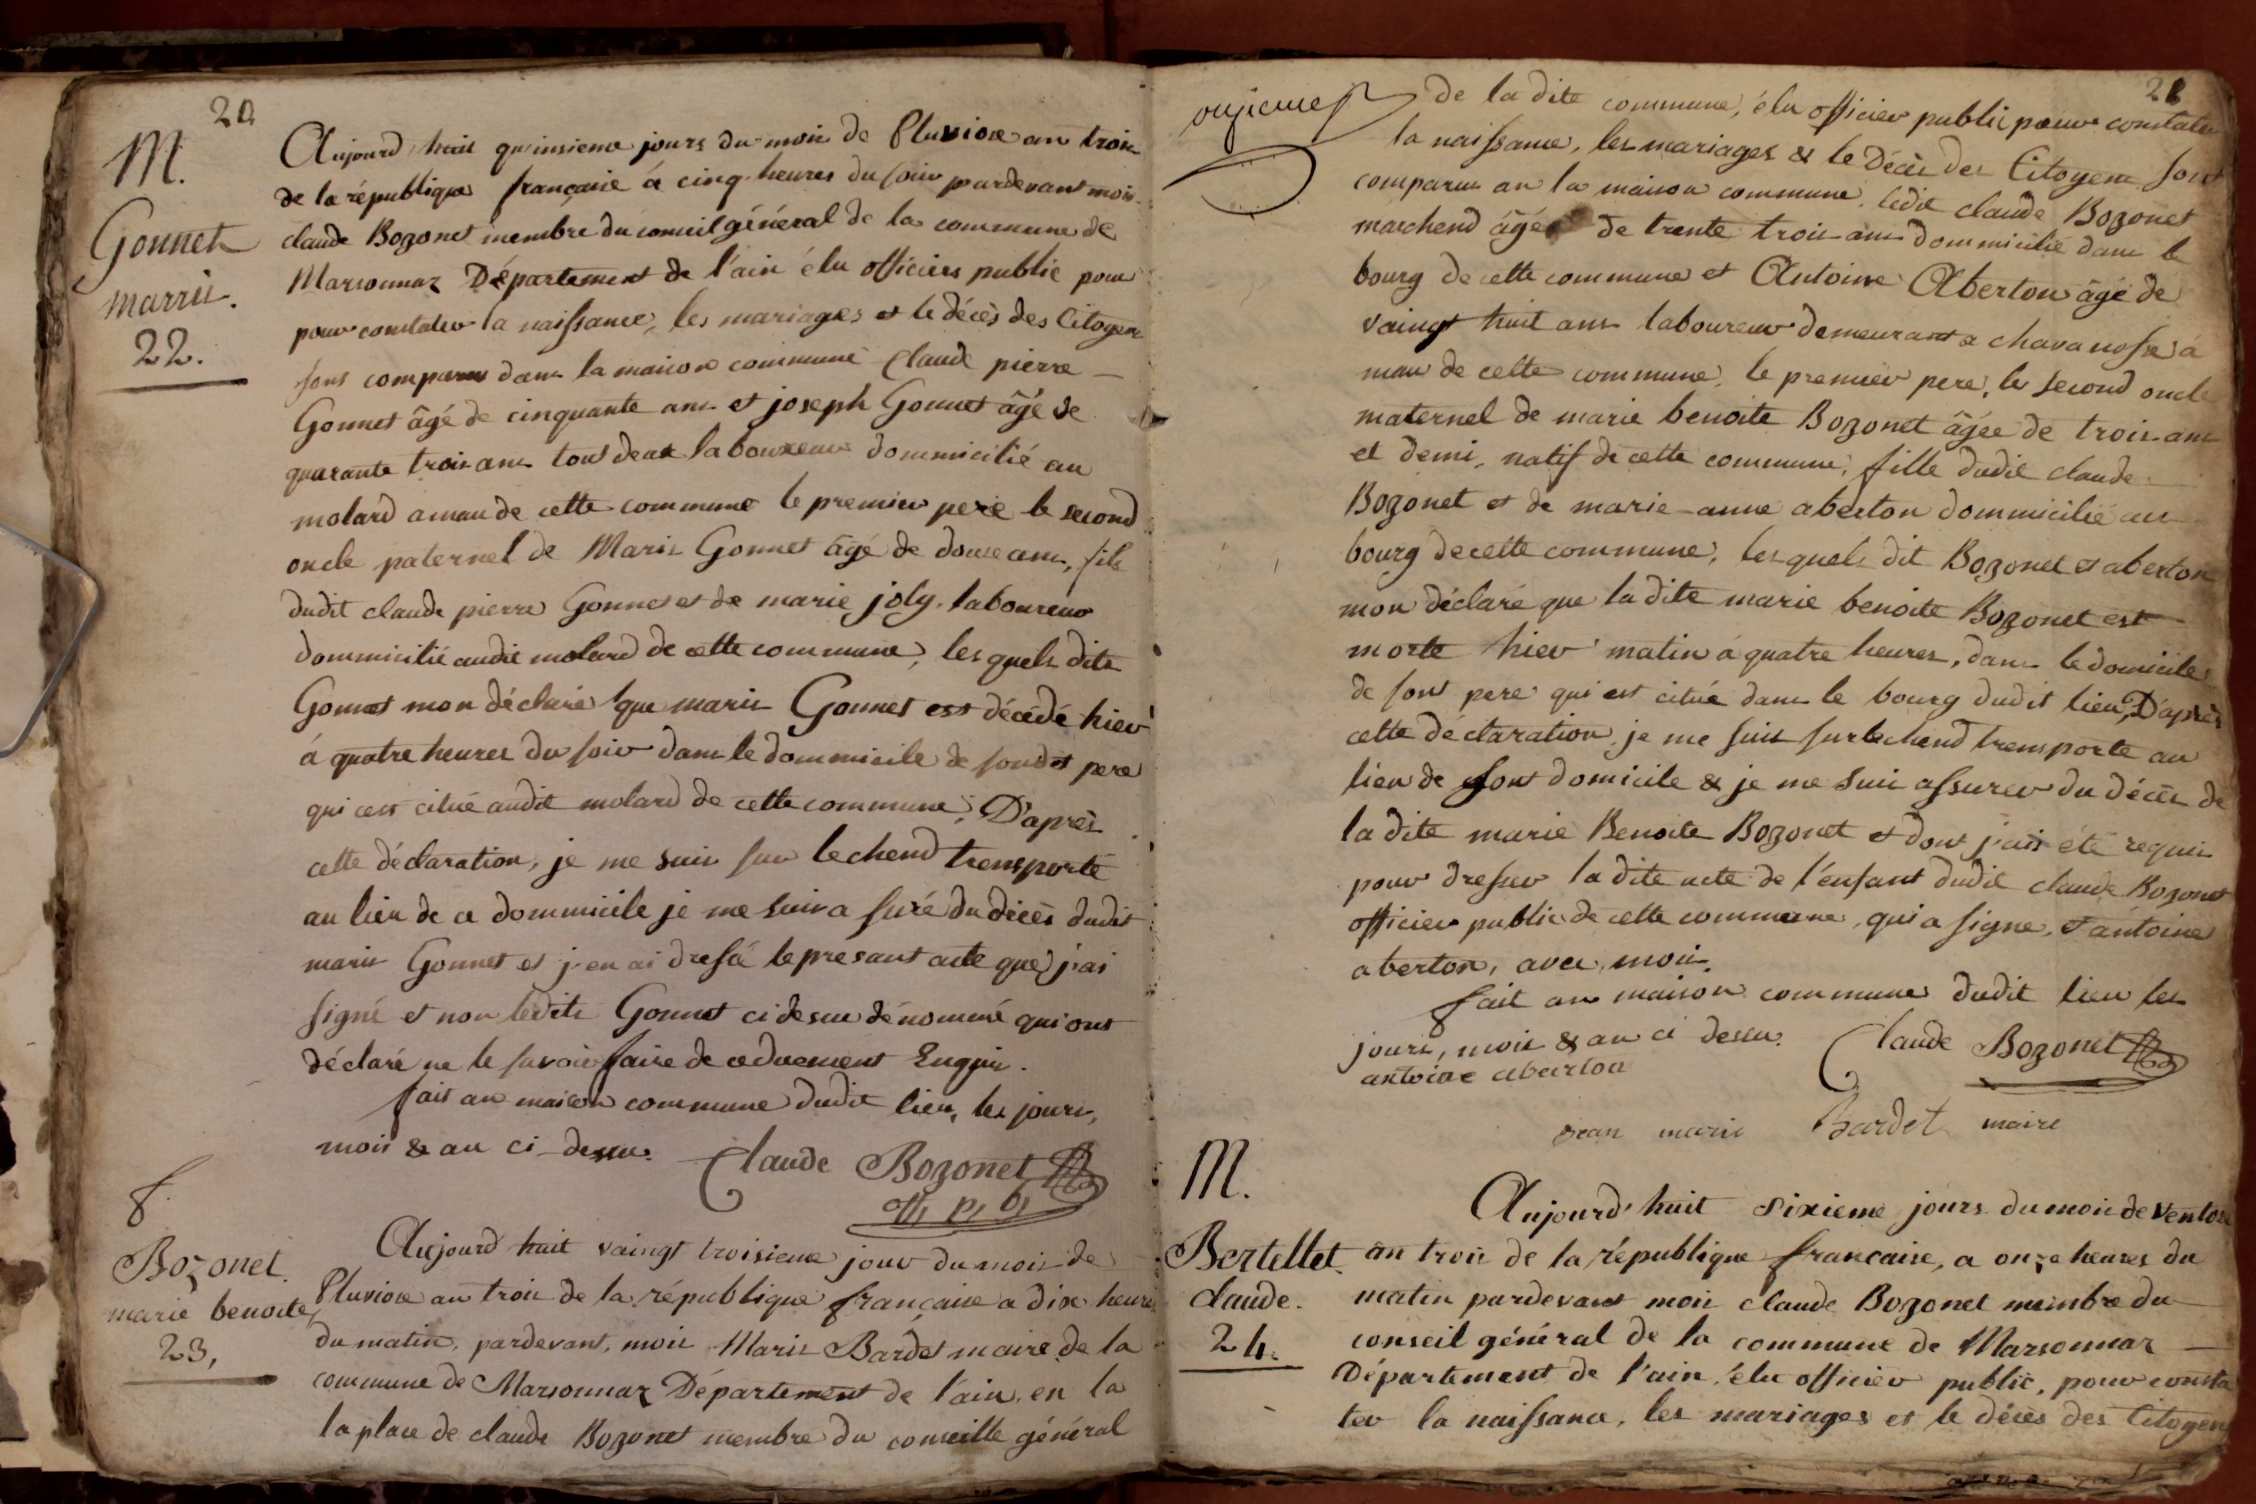 20
M.
Gonnet
marrie.
22.
Aujourd'huit quinsieme jours du mois de Pluviose an trois
de la république française à cinq heures du soir pardevant mois
claude Bozonet membre du conseil général de la commune de
Marsonnaz Département de l'ain élu officiers public pour
pour constater la naissance, les mariages et le décès des Citoyens
sont comparus dans la maison commune Claude pierre
Gonnet âgé de cinquante ans et joseph Gonnet âgé de
quarante trois ans tout deux laboureur dommicilié au
molard a mau de cette commune le premier pere le second
oncle paternel de Marie Gonnet âgé de douse ans, fils
dudit claude pierre Gonnet et de marie joly laboureur
dommicilié audit molard de cette commune, les quels dits
Gonnet mon déclaré que marie Gonnet est décédé hier
à quatre heures du soir dans le dommicile de sondit pere
qui est citué audit molard de cette commune, D'après
cette déclaration, je me suis sur le chend tremporté
au lieu de ce dommicile je me suis a suré du décès dudit
marie Gonnet et j'en ai dressé le presant acte que j'ai
signé et non lesdits Gonnet ci desus dénommé qui ont
déclaré ne le savoir faire de ce duement Enquis.
fait an maison commune dudit lieu, les jours,
mois & an ci dessu. Claude Bozonet
off. p. b.
f.
Bozonet.
marie benoite
23,
Aujourd huit vaingt troisieme jour du mois de
Pluviose an trois de la république française a dix heures
du matin, pardevant, mois Marie Bardet maire de la
commune de Marsonnaz Département de l'ain, en la
la place de claude Bozonet membre du conseille général
21
de la dite commune, élu officier public pour constater
la naissance, les mariages & le Décès des Citoyens sont
comparus an la maison commune ledit claude Bozonet
marchend âgé de trente trois ans dommicilié dans le
bourg de cette commune et Antoine Aberton âgé de
vaingt huit ans laboureur demeurant a chavanosse à
mau de cette commune, le premier pere, le second oncle
maternel de marie benoite Bozonet âgée de trois ans
et demi, natif de cette commune, fille dudit claude
Bozonet et de marie-anne aberton dommicilié au
bourg de cette commune, les quels dit Bozonet et aberton
mon déclaré que la dite marie benoite Bozonet est
morte hier matin à quatre heures, dans le domicile
de sont pere qui est citué dans le bourg dudit lieu, D'après
cette déclaration, je me suis sur le chend tremporte au
lieu de sont domicile & je me suis assurer du décès de
la dite marie Benoite Bozonet et dont j'ais été requis
pour dresser la dite acte de l'enfant dudit claude Bozonet
officier public de cette commune, qui a signe, et antoine
aberton, avec, mois.
fait an maison commune dudit lieu les
jours, mois & an ci dessu. Claude Bozonet
antoine aberton
Jean marie Bardet maire
M.
Bertellet.
claude.
24.
Aujourd'huit sixieme jours du mois de ventose
an trois de la république francaise, a onze heures du
matin pardevant mois claude Bozonet membre du
conseil général de la commune de Marsonnaz
Département de l'ain, élu officier public, pour consta
ter la naissance, les mariages et le décès des Citoyens